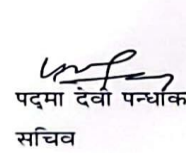 पद्मा देवी पन्धाक
सचिव